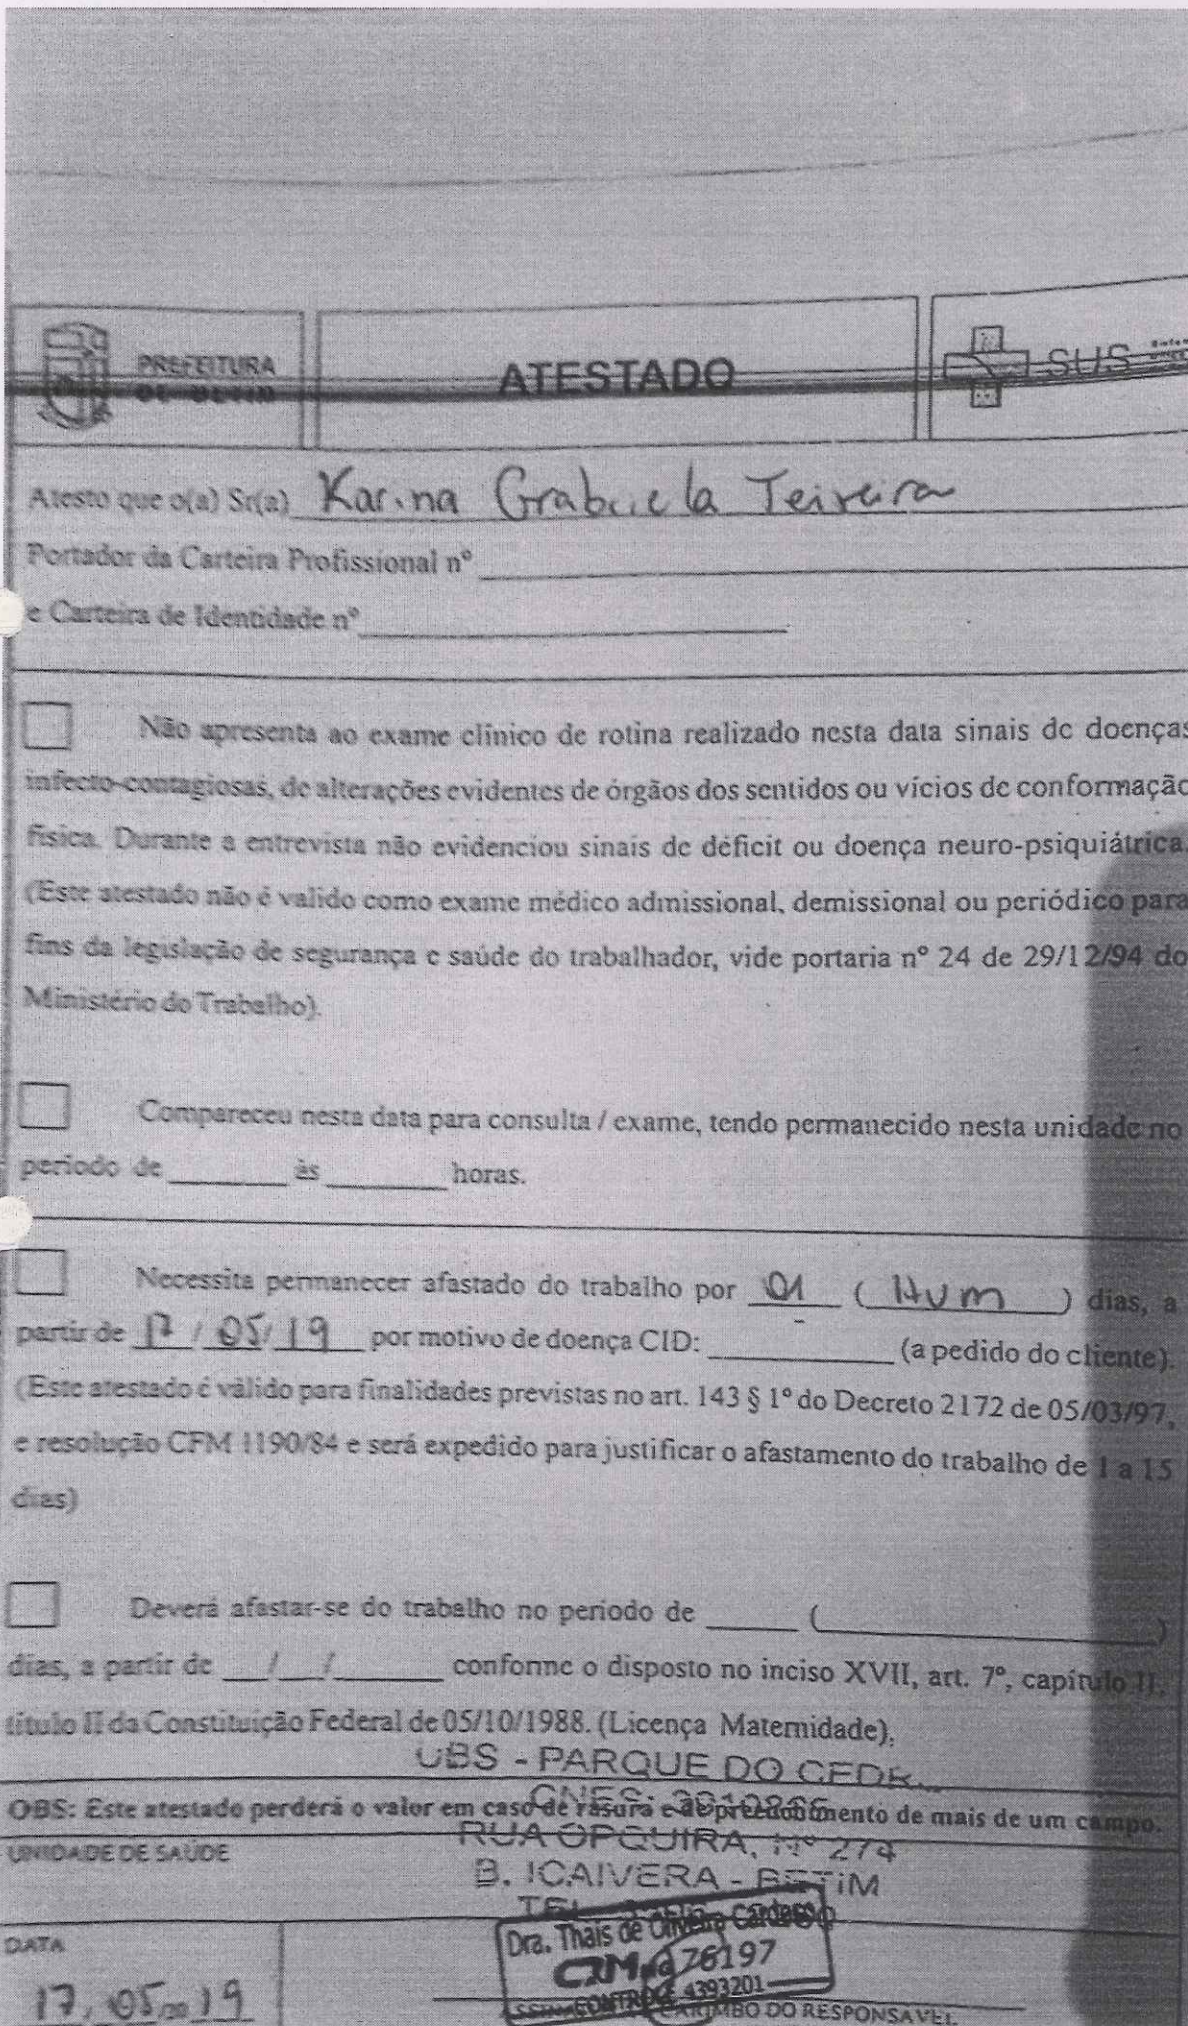 PREFEITURA
DE BETIM
ATESTADO
SUS
Atesto que o(a) Sr(a) Karina Grabriela Teixeira
Portador da Carteira Profissional nº
e Carteira de Identidade nº
Não apresenta ao exame clínico de rotina realizado nesta data sinais de doenças
infecto-contagiosas, de alterações evidentes de órgãos dos sentidos ou vícios de conformação
física. Durante a entrevista não evidenciou sinais de déficit ou doença neuro-psiquiátrica.
(Este atestado não é valido como exame médico admissional, demissional ou periódico para
fins da legislação de segurança e saúde do trabalhador, vide portaria nº 24 de 29/12/94 do
Ministério do Trabalho).
Compareceu nesta data para consulta / exame, tendo permanecido nesta unidade no
período de ______ às ______ horas.
Necessita permanecer afastado do trabalho por 01 ( Hum ) dias, a
partir de 17 / 05 / 19 por motivo de doença CID: ______ (a pedido do cliente).
(Este atestado é válido para finalidades previstas no art. 143 § 1º do Decreto 2172 de 05/03/97,
e resolução CFM 1190/84 e será expedido para justificar o afastamento do trabalho de 1 a 15
dias)
Deverá afastar-se do trabalho no período de ______ ( ______ )
dias, a partir de ___/___/______ conforme o disposto no inciso XVII, art. 7º, capítulo II,
título II da Constituição Federal de 05/10/1988. (Licença Maternidade),
UBS - PARQUE DO CEDR
CNES:
OBS: Este atestado perderá o valor em caso de rasura e de preenchimento de mais de um campo.
RUA OPQUIRA, Nº 274
UNIDADE DE SAÚDE
B. ICAIVERA - BETIM
TEL
Dra. Thais de Oliveira Cardoso
CRM 76197
4393201
DATA
17, 05 19
CARIMBO DO RESPONSÁVEL